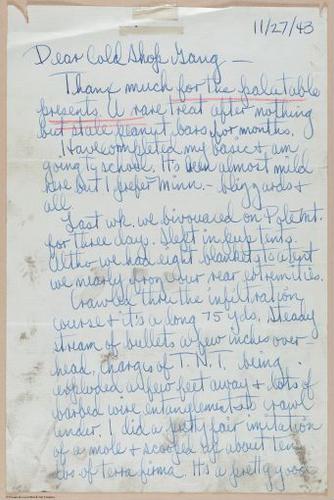 11/27/43
Dear Cold Shop Gang —
Thanx much for the palatable
presents. A rare treat after nothing
but stale peanut bars for months.
Have completed my basic & am
going to school. It's been almost mild
here but I prefer Minn. - blizzards &
all.
Last wk. we bivouaced on Pole Mt.
for three days. Slept in pup tents.
Altho we had eight blankets to a tent
we nearly froze our rear extremities.
Crawled thru the infiltration
course & it's a long 75 yds. Steady
stream of bullets a few inches over
head, charges of T.N.T. being
exploded a few feet away & lots of
barbed wire entanglements to crawl
under. I did a pretty fair imitation
of a mole & scooped up about ten
of terra firma. It's a pretty good